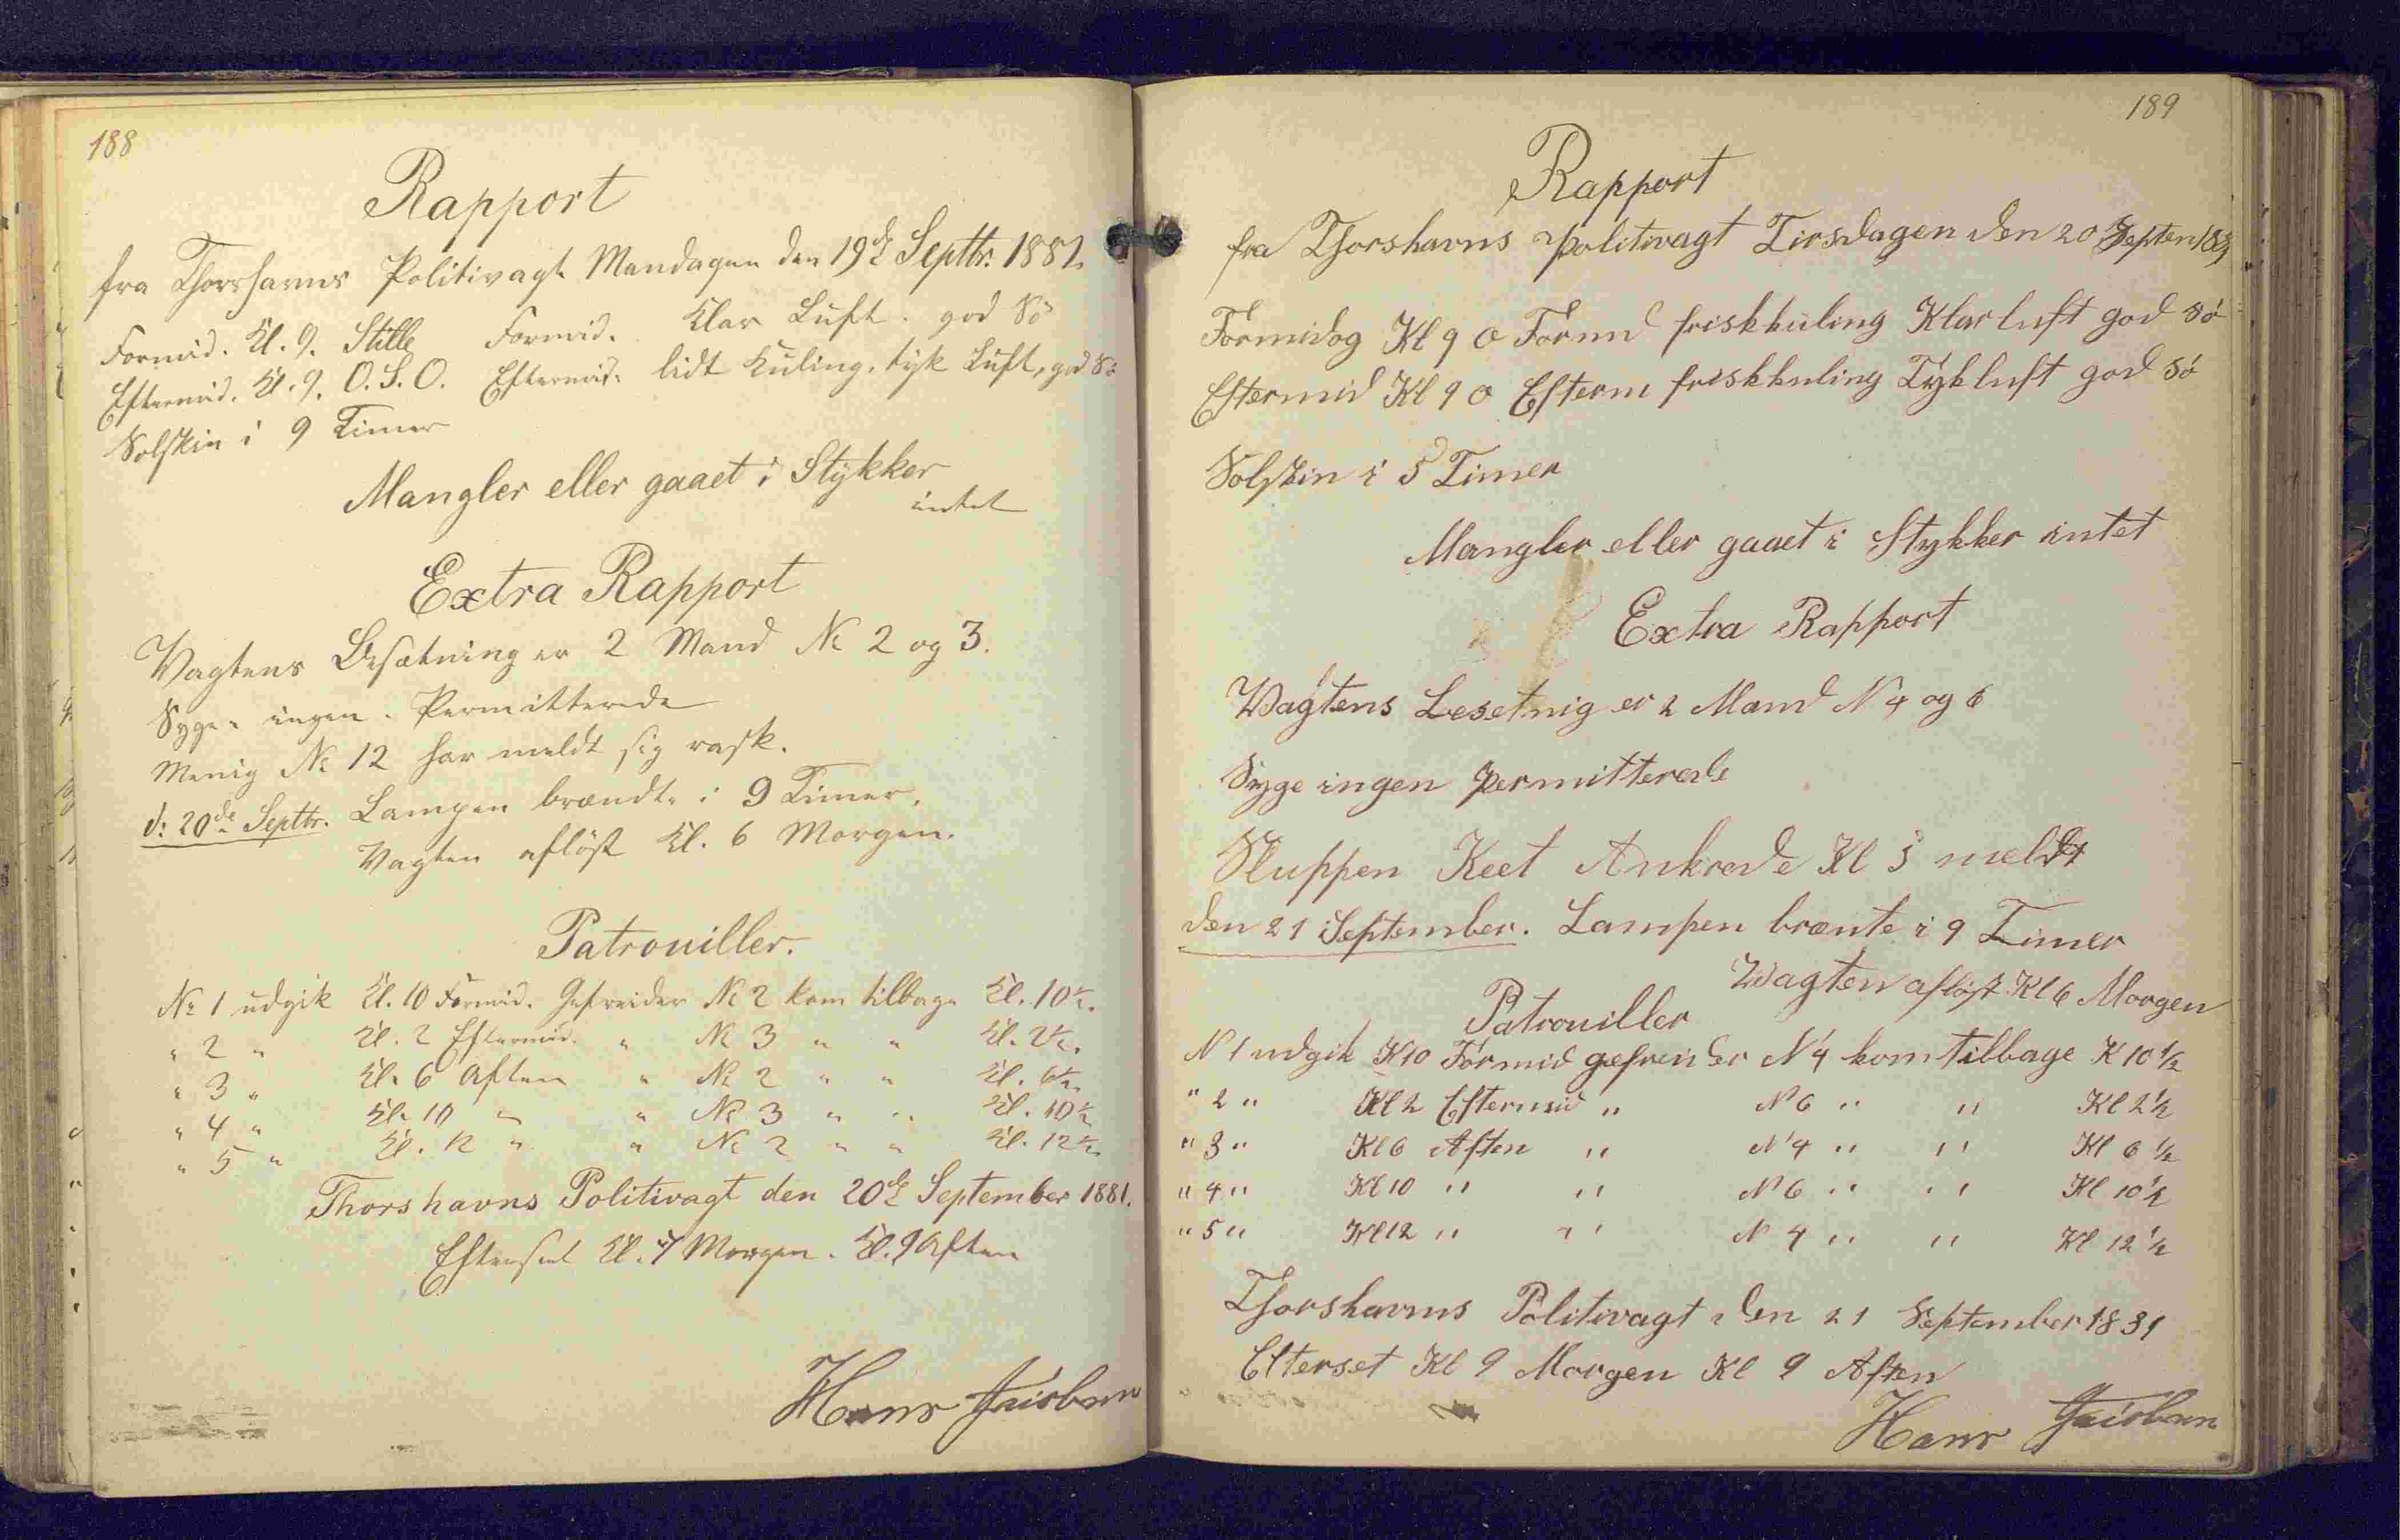 188
Rapport
fra Thorshavns Politivagt Mandagen den 19de Septbr. 1881.
Formid. Kl. 9. Stille Formid. Klar Luft. god Sö
Eftermid. Kl. 9. O.S.O. Eftermid. lidt Kuling, tyk Luft, god Sö
Solskin i 9 Timer
Mangler eller gaaet i Stykker
intet
Extra Rapport
Vagtens Besætning er 2 Mand No 2 og 3.
Syge " ingen. Permitterede
Menig No 12 har meldt sig rask.
d: 20de Septbr. Lampen brændte i 9 Timer.
Vagten aflöst Kl. 6 Morgen.
Patrouiller.
No 1 udgik Kl. 10 Formid. Gefreider No 2 kom tilbage Kl. 10½.
" 2 " Kl. 2 Eftermid. " No 3 " " Kl. 2½.
" 3 " Kl. 6 Aften " No 2 " " Kl. 6½.
" 4 " Kl. 10 " " No 3 " " Kl. 10½
" 5 " Kl. 12 " " No 2 " " Kl. 12½.
Thorshavns Politivagt den 20de September 1881.
Efterset Kl. 7 Morgen. Kl. 9 Aften
Hans
189
Rapport
fra Thorshavns Politivagt Tirsdagen den 20 Septen
Formidog Kl 9 O Formd friskkuling Klarluft god Sö
Eftermid Kl 9 O Efterm friskkuling Tykluft god Sö
Solskin i 5 Timer
Mangler eller gaaet i Stykker intet
Extra Rapport
Wagtens Besetnig er 2 Mand N 4 og 6
Syge ingen Permitterede
Sluppen Keet Ankrede Kl 5 meldt
den 21 September. Lampen brænte i 9 Timer
Wagten aflöst Kl 6 Morgen
Patrouiller
N 1 udgik K 10 Formid gefreider N 4 kom tilbage K 10 ½
" 2 " Kl 2 Eftermid " N 6 " " Kl 2½
" 3 " Kl 6 Aften " N 4 " " Kl 6 ½
" 4 " Kl 10 " " N 6 " " Kl 10½
" 5 " Kl 12 " " N 4 " " Kl 12 ½
Thorshavns Politivagt den 21 September 1881
Efterset Kl 9 Morgen Kl 9 Aften
Hans